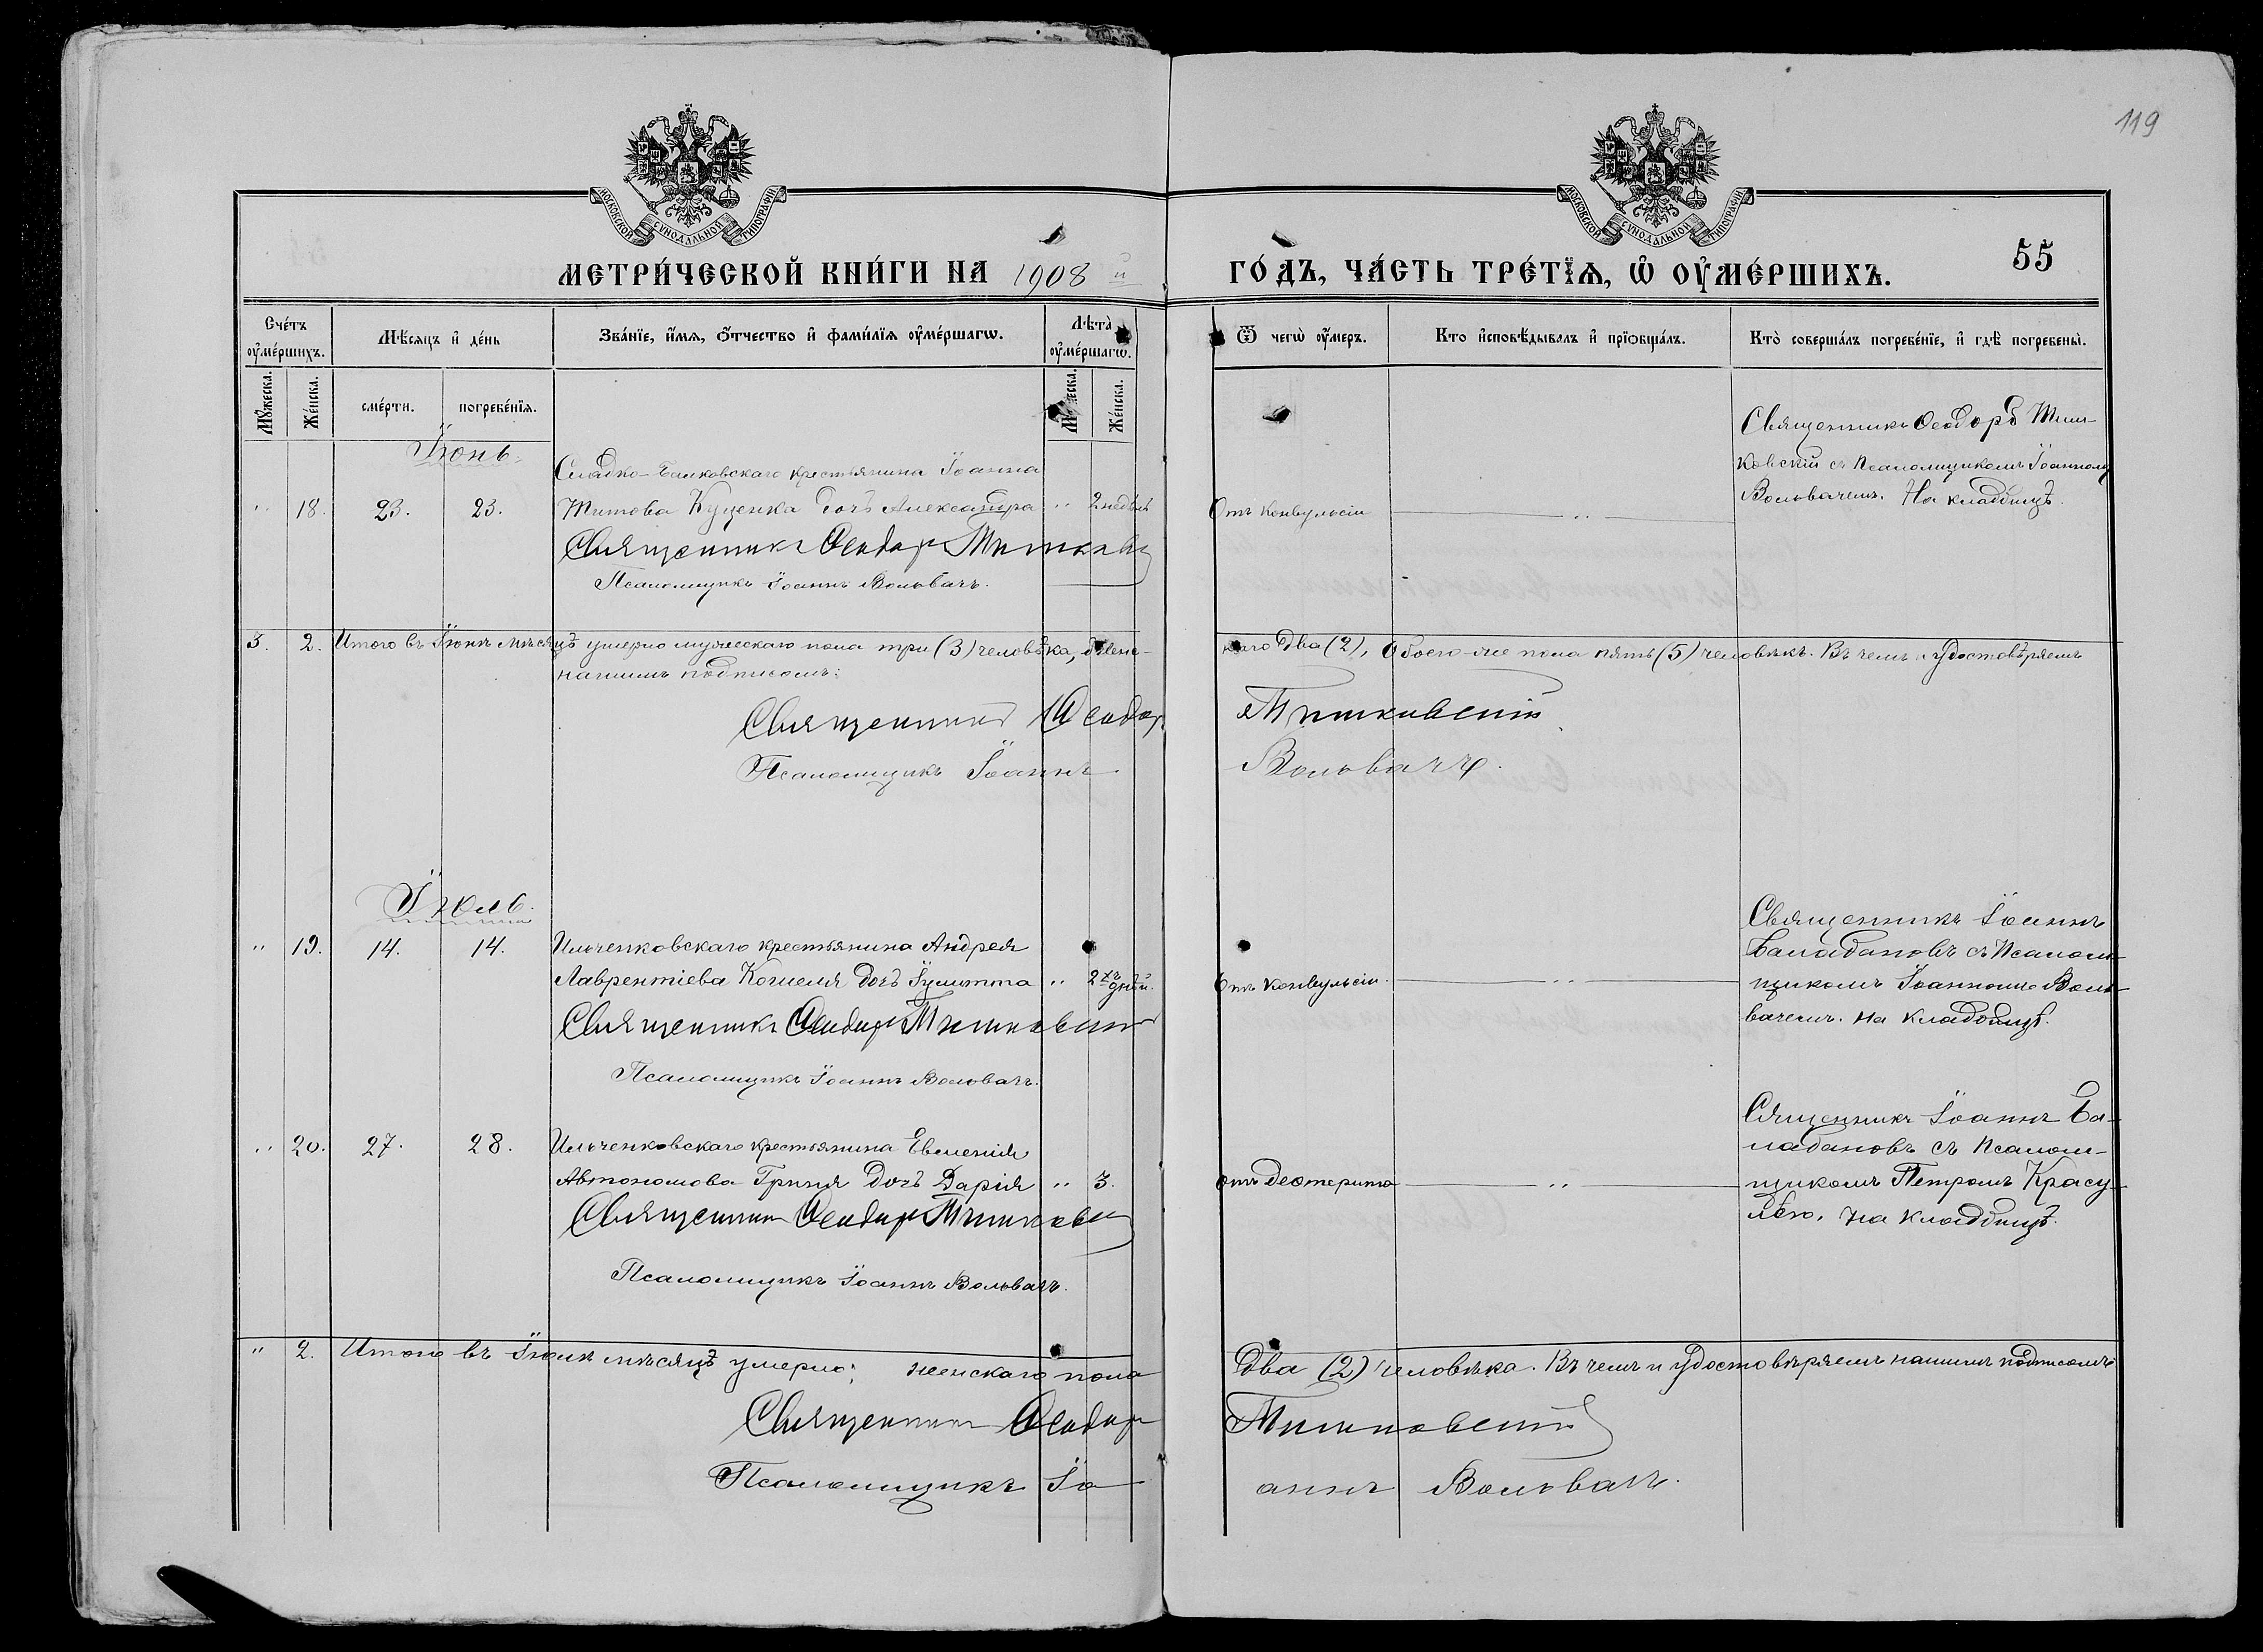 119
МОСКОВСКОЙ СУНОДАЛЬНОЙ ТИПОГРАФІИ
МОСКОВСКОЙ СУНОДАЛЬНОЙ ТИПОГРАФІИ
МЕТРИ́ЧЕСКОЙ КНИ́ГИ НА 1908 й
ГО́ДЪ, ЧА́СТЬ ТРЕ́ТЇѦ, Ѡ҆ ОУ҆МЕ́РШИХЪ.
55
Сче́тъ оу҆ме́ршихъ.
Мѣ́сяцъ и҆ де́нь
Зва́нїе, и҆́мѧ, ѻ҆́тчество и҆ фами́лїѧ оу҆ме́ршагѡ.
Лѣ́та оу҆ме́ршагѡ.
Ѿ чегѡ̀ оу҆́меръ.
Кто̀ и҆сповѣ́дывалъ и҆ прїѡбща́лъ.
Кто̀ соверша́лъ погребе́нїе, и҆ гдѣ̀ погребены̀.
Мꙋ́жеска.
Же́нска.
сме́рти.
погребе́нїѧ.
Же́нска.
Іюнь.
Сладко-Балковскаго крестьянина Іоанна
" 18. 23. 23. Титова Куценка дочь Александра " 2 недѣль
Священникъ Ѳеодоръ Тишков
Псаломщикъ Іоаннъ Вольвачъ.
Отъ конвульсіи
"
Священникъ Ѳеодоръ Тиш-
ковскій съ Псаломщикомъ Іоанномъ
Вольвачемъ. На кладбищѣ.
3. 2. Итого въ Іюнѣ мѣсяцѣ умерло мужескаго пола три (3) человѣка, женс-
каго два (2), Обоего-же пола пять (5) человѣкъ. Въ чемъ и удостовѣряемъ
нашимъ подписомъ:
Священникъ Ѳеодоръ Тишковскій
Псаломщикъ Іоаннъ Вольвачъ.
Іюль.
" 19. 14. 14. Ильченковскаго крестьянина Андрея
Лаврентіева Кошеля дочь Іулитта " 2хъ дней.
Священникъ Ѳеодоръ Тишковскій
Псаломщикъ Іоаннъ Вольвачъ.
Отъ конвульсіи.
"
Священникъ Іоаннъ
Баладановъ съ Псалом-
щикомъ Іоанномъ Воль-
вачемъ. На кладбищѣ.
" 20. 27. 28. Ильченковскаго крестьянина Евменія
Автономова Гриня дочь Дарія " 3.
Священникъ Ѳеодоръ Тишковскій
Псаломщикъ Іоаннъ Вольвачъ.
отъ деотерита
"
Сященникъ Іоаннъ Ба-
ладановъ съ Псалом-
щикомъ Петромъ Красу-
лею. На кладбищѣ.
" 2. Итого въ Іюлѣ мѣсяцѣ умерло; женскаго пола
два (2) человѣка. Въ чемъ и удостовѣряемъ нашимъ подписомъ
Священникъ Ѳеодоръ Тишковскій
Псаломщикъ Іоаннъ Вольвачъ.